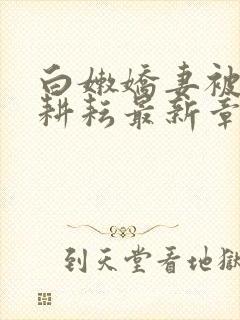 白嫩嬌妻被
耕耘最新章
到天堂看地獄